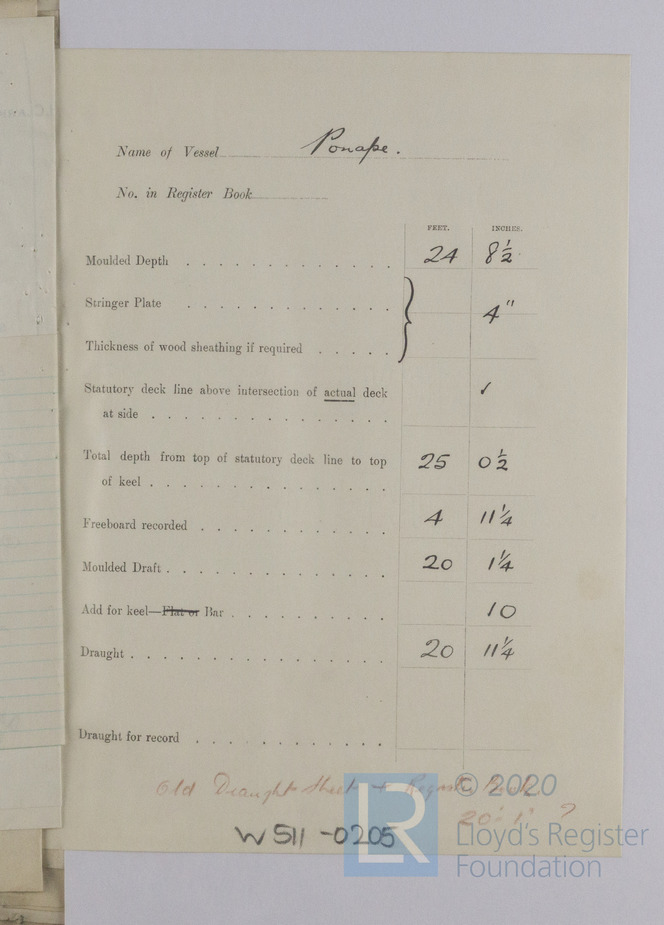 Name of Vessel Ponape.
No. in Register Book
FEET. INCHES.
Moulded Depth . . . . . . . . . . . . . 24 8½
Stringer Plate . . . . . . . . . . . . .
4"
Thickness of wood sheathing if required . . . . .
Statutory deck line above intersection of actual deck ✓
at side . . . . . . . . . . . . . . .
Total depth from top of statutory deck line to top 25 0½
of keel . . . . . . . . . . . . . . .
Freeboard recorded . . . . . . . . . . . . 4 11¼
Moulded Draft . . . . . . . . . . . . . . 20 1¼
Add for keel—Flat or Bar . . . . . . . . . . 10
Draught . . . . . . . . . . . . . . . . 20 11¼
Draught for record . . . . . . . . . . . .
Old Draught Sheet + Register Book
20' 1" ?
W511-0205
LR
© 2020
Lloyd's Register
Foundation